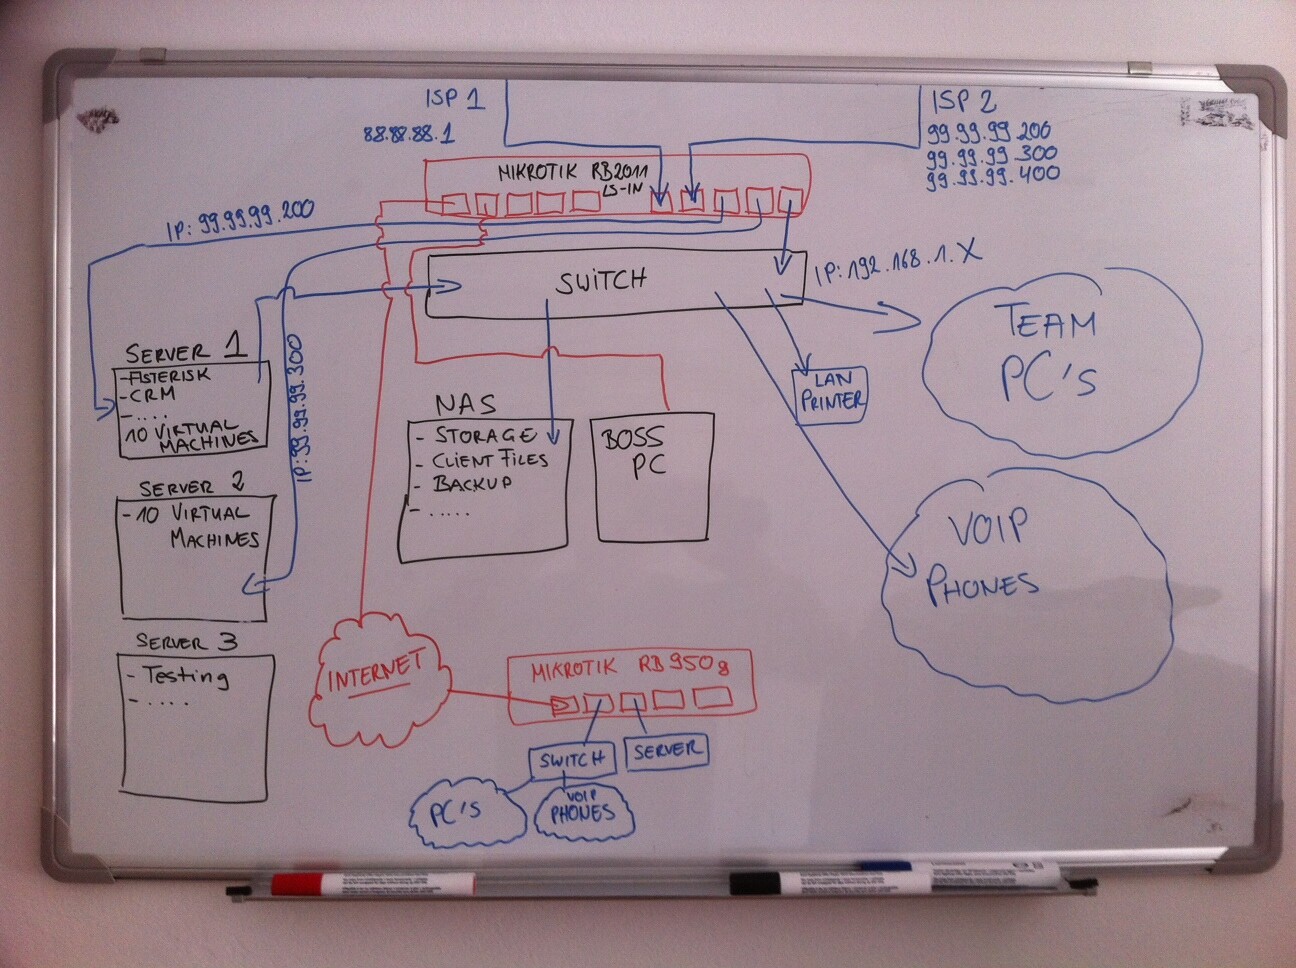 ISP 1
88.88.88.1
ISP 2
99.99.99.200
99.99.99.300
99.99.99.400
MIKROTIK RB2011
LS-IN
IP: 99.99.99.200
SWITCH
IP: 192.168.1.X
TEAM
PC'S
SERVER 1
-ASTERISK
-CRM
-....
10 VIRTUAL
MACHINES
IP: 99.99.99.300
LAN
PRINTER
NAS
- STORAGE
- CLIENT FILES
- BACKUP
- .....
BOSS
PC
SERVER 2
-10 VIRTUAL
MACHINES
VOIP
PHONES
SERVER 3
- Testing
- ....
INTERNET
MIKROTIK RB950g
SWITCH
SERVER
PC'S
VOIP
PHONES